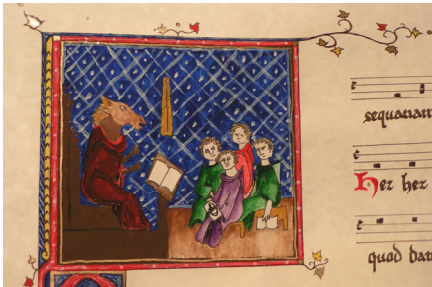 sequanam
Hez hez
quod dat